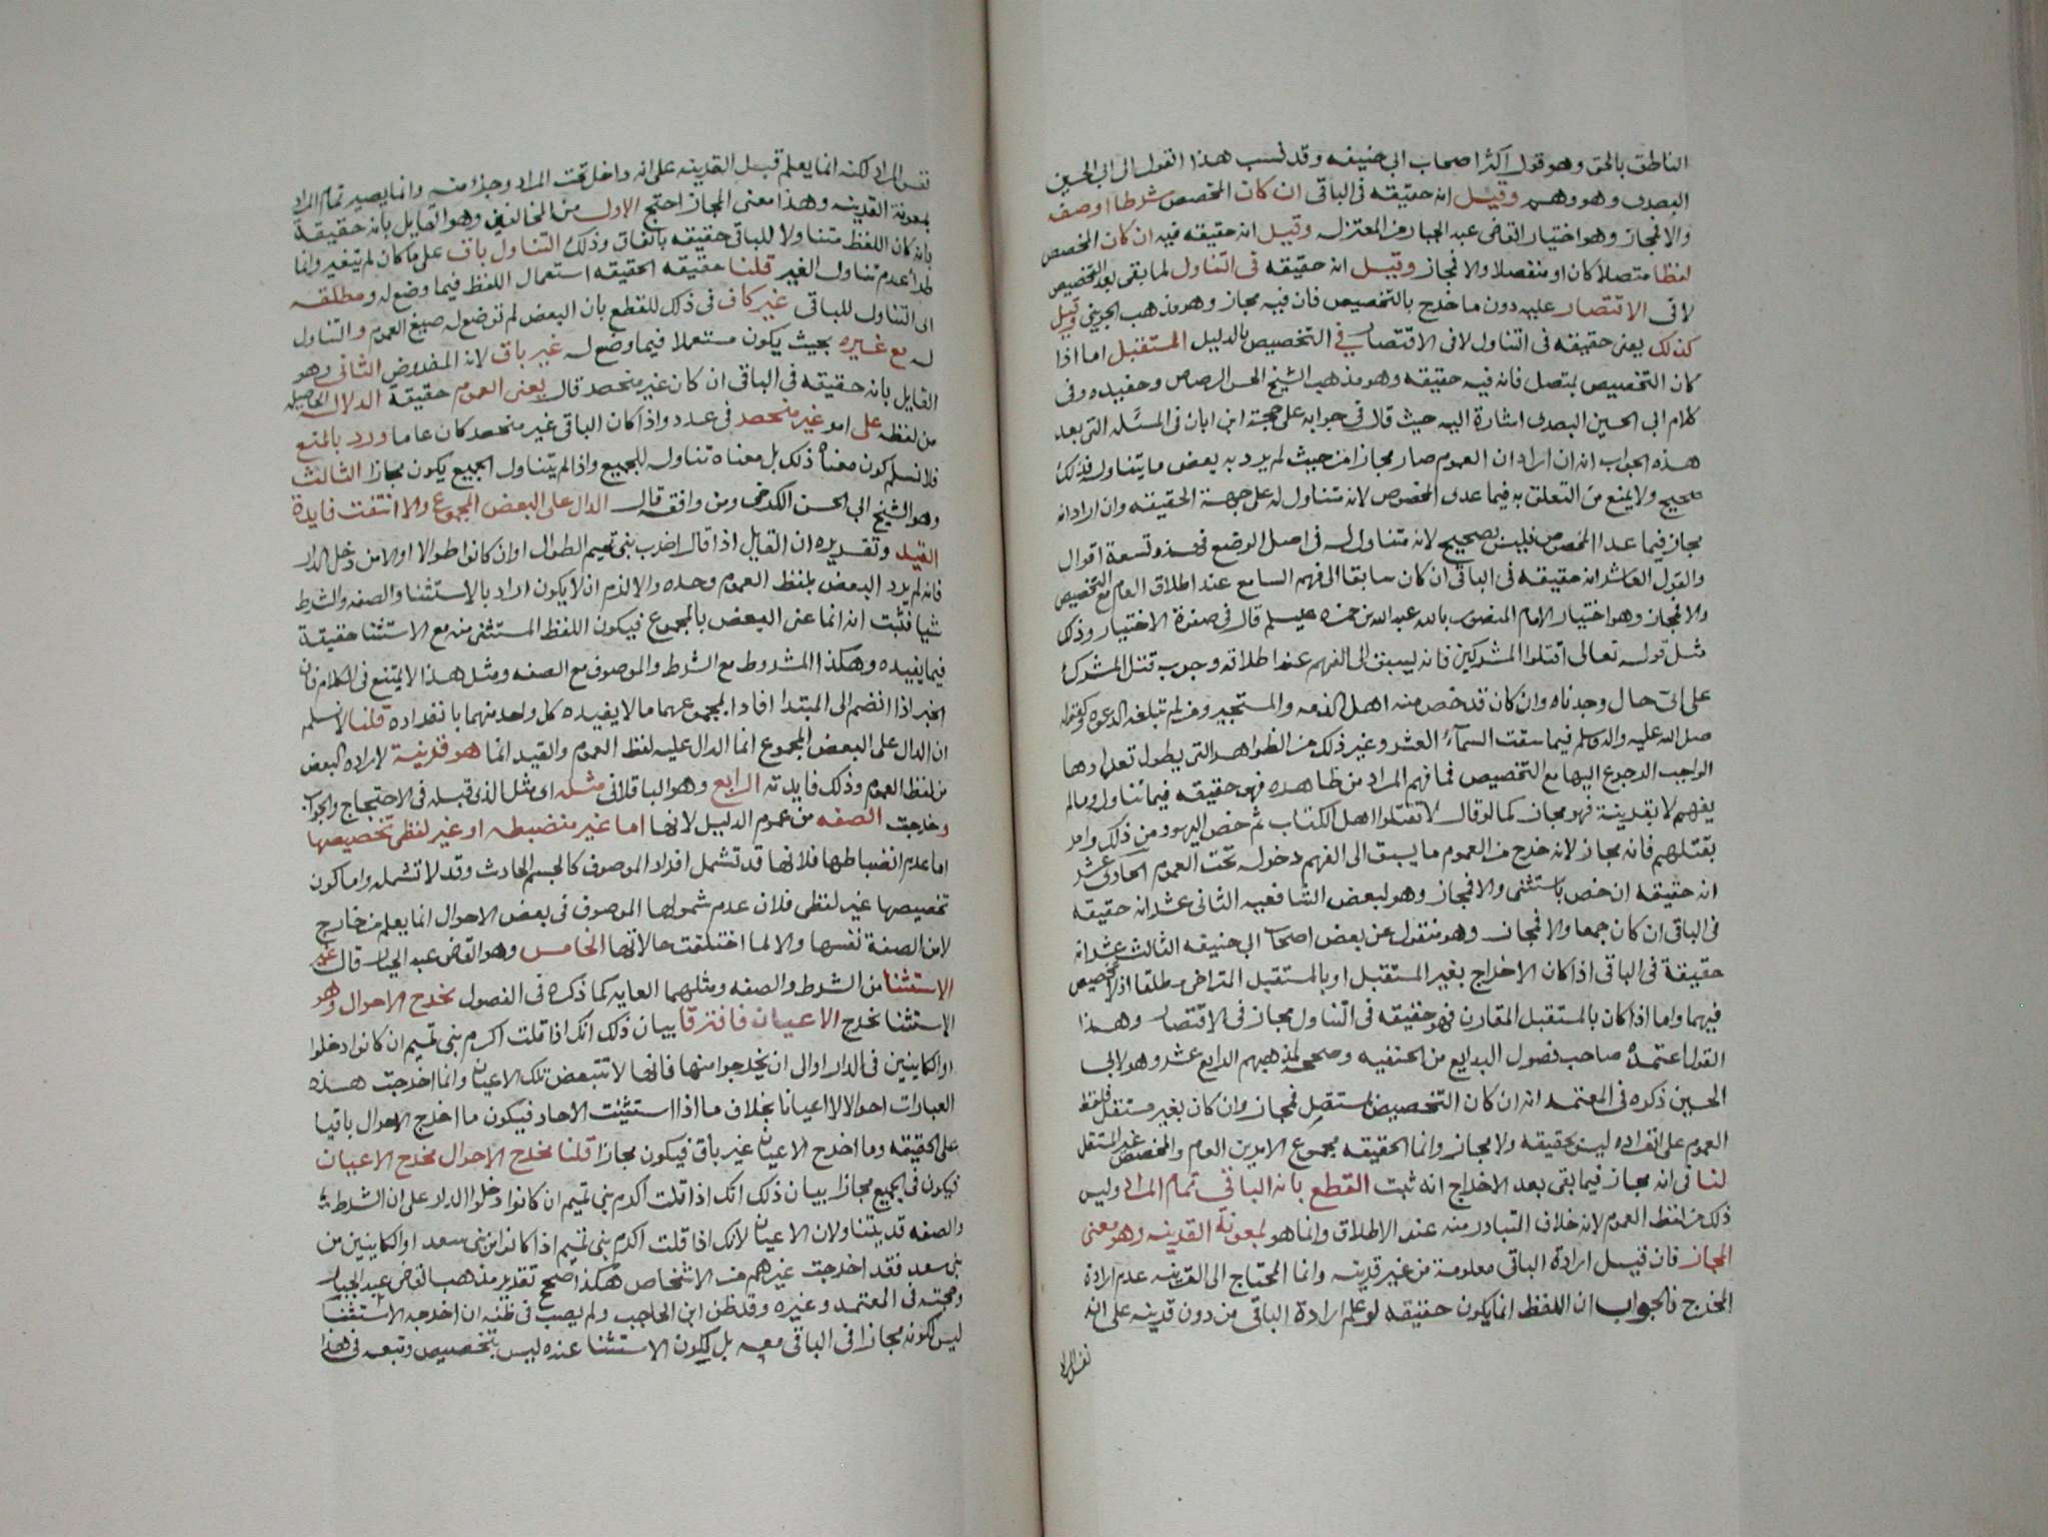 الناطق بالحق وهو قول اكثر اصحاب ابي حنيفه وقد نسب هذا القول الى ابي الحسين
البصرى وهو وهم وقيل انه حقيقه فى الباقى ان كان المخصص شرطا او صفه
والا فمجاز وهو اختيار القاضى عبد الجبار من المعتزله وقيل انه حقيقه فيه ان كان المخصص
لفظا متصلا كان او منفصلا والا فمجاز وقيل انه حقيقه فى التناول لما بقى بعد التخصيص
لا فى الاقتصار عليه دون ما خرج بالتخصيص فان فيه مجاز وهو مذهب الجويني وقيل
كذلك يعنى حقيقه فى التناول لا فى الاقتصار فى التخصيص بالدليل المستقبل اما اذا
كان التخصيص بمتصل فانه فيه حقيقه وهو مذهب الشيخ الحسن الرصاص وحفيده وفى
كلام ابي الحسين البصرى اشارة اليه حيث قال فى جوابه على حجة ابن ابان فى المسئله التى بعد
هذه الجواب انه ان اراد ان العموم صار مجازا من حيث لم يرد به بعض ما يتناوله فذلك
صحيح ولا يمنع من التعلق به فيما عدى المخصوص لانه متناول له على جهة الحقيقه وان اراد انه
مجاز فيما عدا المخصوص فليس بصحيح لانه متناول له فى اصل الوضع فهذه تسعة اقوال
والقول العاشر انه حقيقه فى الباقى ان كان سابقا الى فهم السامع عند اطلاق العام مع التخصيص
والا فمجاز وهو اختيار الامام المنصور بالله عبد الله بن حمزه عليسلم قال فى صفوة الاختيار وذلك
مثل قوله تعالى اقتلوا المشركين فانه يسبق الى الفهم عند اطلاقه وجوب قتل المشرك
على اى حال وجدناه وان كان قد خص منه اهل الذمه والمستجير ومن لم تبلغه الدعوه وكقوله
صلى الله عليه واله وسلم فيما سقت السمآء العشر وغير ذلك من الظواهر التى يطول تعدادها
الواجب الرجوع اليها مع التخصيص فما فهم المراد من ظاهره فهو حقيقه فيما تناوله وما لم
يفهم الا بقرينة فهو مجاز كما لو قال لا تقتلوا اهل الكتاب ثم خص اليهود من ذلك وامر
بقتلهم فانه مجاز لانه خرج من العموم ما يسبق الى الفهم دخوله تحت العموم الحادى عشر
انه حقيقه ان خص باستثنى والا فمجاز وهو لبعض الشافعيه الثانى عشر انه حقيقه
فى الباقى ان كان جمعا والا فمجاز وهو منقول عن بعض اصحاب ابي حنيفه الثالث عشر انه
حقيقة فى الباقى اذا كان الاخراج بغير المستقبل او بالمستقبل المتراخى مطلقا اذ لا تخصيص
فيهما واما اذا كان بالمستقبل المقارن فهو حقيقه فى التناول مجاز فى الاقتصار وهذا
القول اعتمده صاحب فصول البدايع من الحنفيه وصححه لمذهبهم الرابع عشر وهو لابي
الحسين ذكره فى المعتمد انه ان كان التخصيص بمستقل فمجاز وان كان بغير مستقل فلفظ
العموم على انفراده ليس بحقيقه ولا مجاز وانما الحقيقه مجموع الامرين العام والمخصص غير المستقل
لنا فى انه مجاز فيما بقى بعد الاخراج انه ثبت القطع بانه الباقى تمام المراد وليس
ذلك من لفظ العموم لانه خلاف المتبادر منه عند الاطلاق وانما هو بمعونة القرينه وهو معنى
المجاز فان قيل ارادة الباقى معلومة من غير قرينه وانما المحتاج الى القرينه عدم ارادة
المخرج فالجواب ان اللفظ انما يكون حقيقه لو علم ارادة الباقى من دون قرينه على انه
نفس المراد
نفس المراد لكنه انما يعلم قبل القرينه على انه داخل تحت المراد وجزء منه وانما يصير تمام المراد
بمعونة القرينه وهذا معنى المجاز احتج الاول من المخالفين وهو القايل بانه حقيقة
بانه كان اللفظ متناولا للباقى حقيقه باتفاق وذلك التناول باق على ما كان لم يتغير وانما
طرأ عدم تناول الغير قلنا حقيقه الحقيقه استعمال اللفظ فيما وضع له ومطلقه
الى التناول للباقى غير كاف فى ذلك للقطع بان البعض لم توضع له صيغ العموم والتناول
له مع غيره بحيث يكون مستعملا فيما وضع له غير باق لانه المفروض الثانى وهو
القايل بانه حقيقه فى الباقى ان كان غير منحصر قال يعنى العموم حقيقة الدلاله الحاصله
من لفظه على امر غير منحصر فى عدد واذا كان الباقى غير منحصر كان عاما ورد بالمنع
فلا نسلم كون معناه ذلك بل معناه تناوله للجميع واذا لم يتناول الجميع يكون مجازا الثالث
وهو الشيخ ابي الحسن الكرخى ومن وافقه قال الدال على البعض المجموع والا انتفت فايدة
القيد وتقريره ان القايل اذا قال اضرب بنى تميم الطوال او ان كانوا طوالا او الا من دخل الدار
فانه لم يرد البعض بلفظ العموم وحده والا لزم ان لا يكون اراد بالاستثنا والصفه والشرط
شيا فثبت انه انما عنى البعض بالمجموع فيكون اللفظ المستثنى منه مع الاستثنا حقيقة
فيما يفيده وهكذا المشروط مع الشرط والموصوف مع الصفه ومثل هذا لا يمتنع فى الكلام فان
الخبر اذا انضم الى المبتدا افادا بمجموعهما ما لا يفيده كل واحد منهما بانفراده قلنا لا نسلم
ان الدال على البعض المجموع انما الدال عليه لفظ العموم والقيد انما هو قرينة لارادة البعض
من لفظ العموم وذلك فايدته الرابع وهو الباقلانى مثله اى مثل الذى قبله فى الاحتجاج والجواب
وخرجت الصفه من عموم الدليل لانها اما غير منضبطه او غير لفظى تخصيصها
اما عدم انضباطها فلانها قد تشمل افراد الموصوف كالجسم الحادث وقد لا تشمله واما كون
تخصيصها غير لفظى فلان عدم شمولها الموصوف فى بعض الاحوال انما يعلم من خارج
لا من الصفة نفسها والا لما اختلفت حالاتها الخامس وهو القاضى عبد الجبار قال غير
الاستثنا من الشرط والصفه ومثلهما الغايه كما ذكره فى الفصول يخرج الاحوال وهو
الاستثنا يخرج الاعيان فافترقا بيان ذلك انك اذا قلت اكرم بنى تميم ان كانوا دخلوا
او الكاينين فى الدار او الى ان يخرجوا منها فانها لا تتبعض تلك الاعيان وانما اخرجت هذه
العبارات احوالا لا اعيانا بخلاف ما اذا استثنيت الاحاد فيكون ما اخرج الاحوال باقيا
على الحقيقه وما اخرج الاعيان غير باق فيكون مجازا قلنا مخرج الاحوال مخرج الاعيان
فيكون فى الجميع مجازا بيان ذلك انك اذا قلت اكرم بنى تميم ان كانوا دخلوا الدار على ان الشرط
والصفه قد يتناولان الاعيان لانك اذا قلت اكرم بنى تميم اذا كانوا من بنى سعد او الكاينين من
بنى سعد فقد اخرجت غيرهم من الاشخاص هكذا صحح تقدير مذهب القاضى عبد الجبار
وحجته فى المعتمد وغيره وقد ظن ابن الحاجب ولم يصب فى ظنه ان اخرجه الاستثنا
ليس لكونه مجازا فى الباقى معه بل لكون الاستثنا عنده ليس بتخصيص وتبعه فى هذا